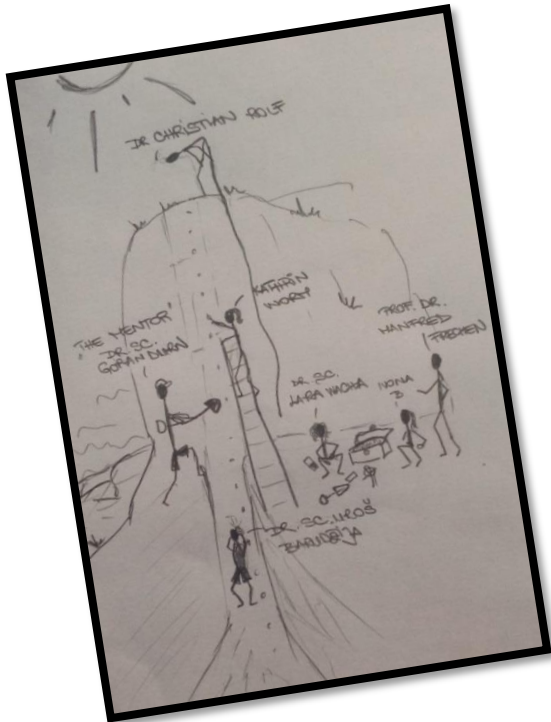 DR CHRISTIAN ROLF
KATHRIN
WORM
"THE MENTOR"
DR. SC.
GORAN DURN
PROF. DR.
MANFRED
FRECHEN
DR. SC.
LARA WACHA
NONA
D
DR. SC. UROŠ
BARUDŽIJA